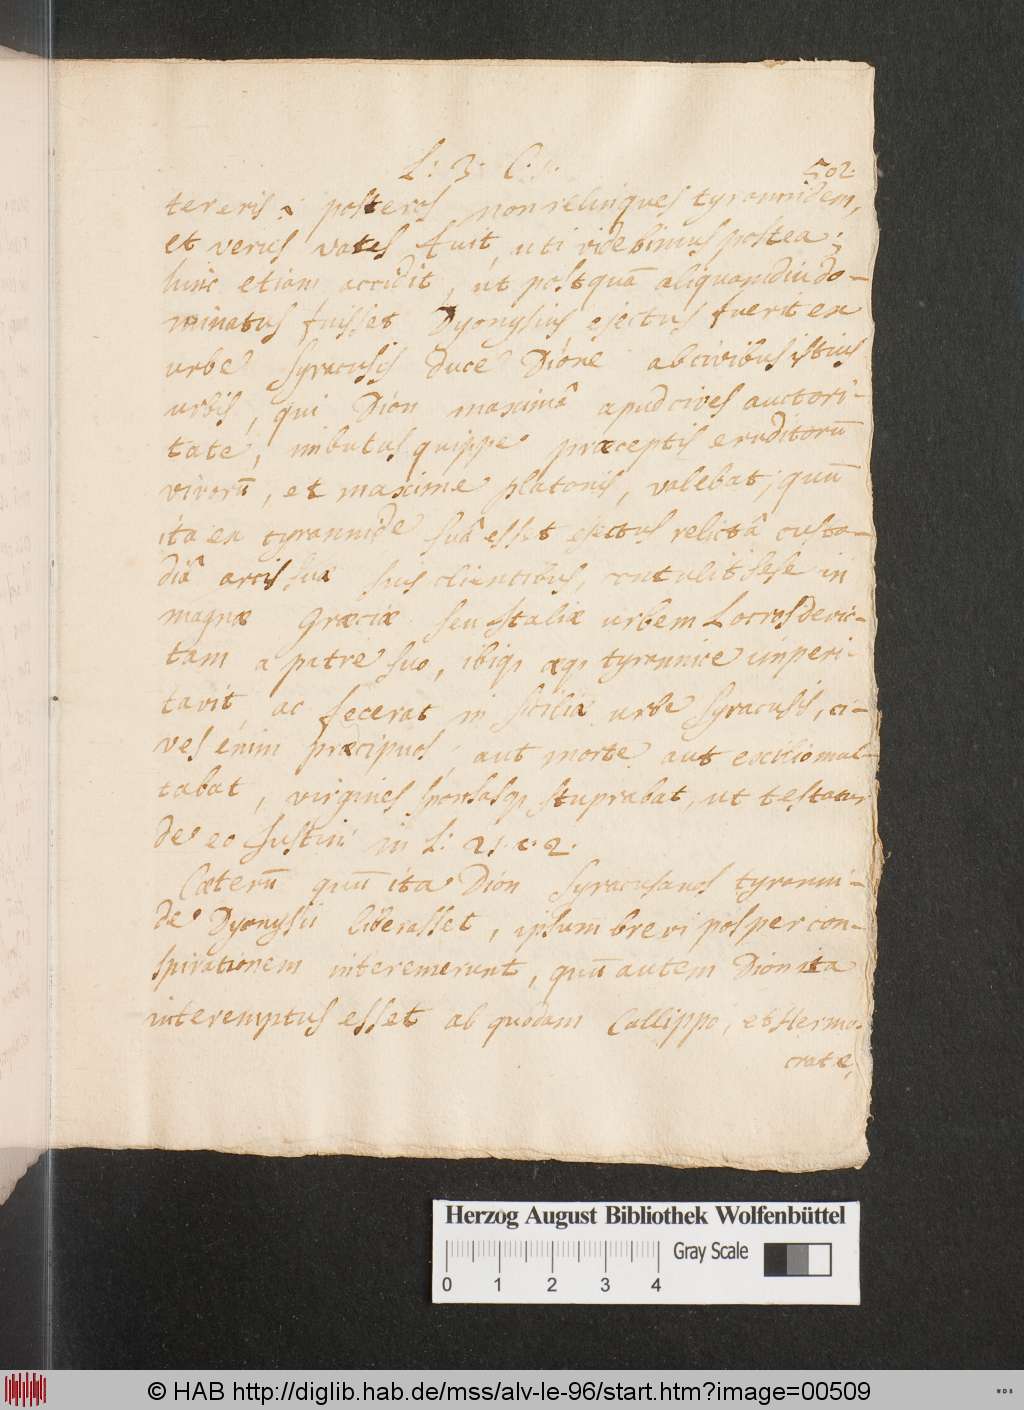 L: 3. C: 1. 502.
tereris, posteros non relinques tyrannidem,
et verus vates fuit, uti videbimus postea;
hinc etiam accidit, ut postquã aliquamdiu do-
minatus fuisset Dyonysius ejectus fuerit ex
urbe Syracusis duce Dione ab civibus istius
urbis, qui Dion maximâ apud cives auctori-
tate, imbutus quippe præceptis eruditorũ
virorũ, et maxime platonis, valebat; quũ
ita ex tyrannide suâ esset ejectus relictâ custo-
diâ arcis suæ suis clientibus, contulit sese in
magnæ Græciæ seu Italiæ urbem Locros devic-
tam a patre suo, ibiqȝ æqȝ tyrannice imperi-
tavit, ac fecerat in Siciliæ urbe Syracusis, ci-
ves enim præcipuos, aut morte aut exilio mul-
tabat, virgines sponsasqȝ stuprabat, ut testatur
de eo Justin: in L: 21. c. 2.
Cæterũ quũ ita Dion Syracusanos tyranni-
de Dyonysii liberasset, ipsum brevi pos per con-
spirationem interemerunt, quũ autem Dion ita
interemptus esset ab quodam Callippo, et Hermo-
crate,
Herzog August Bibliothek Wolfenbüttel
0 1 2 3 4
Gray Scale
© HAB http://diglib.hab.de/mss/alv-le-96/start.htm?image=00509